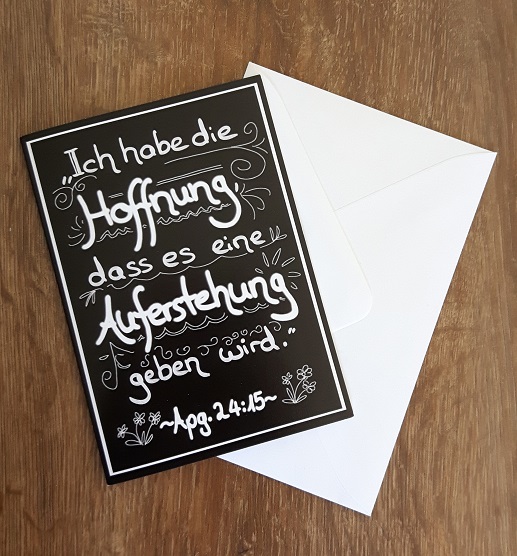 "Ich habe die
Hoffnung,
dass es eine
Auferstehung
geben wird."
~Apg. 24:15~